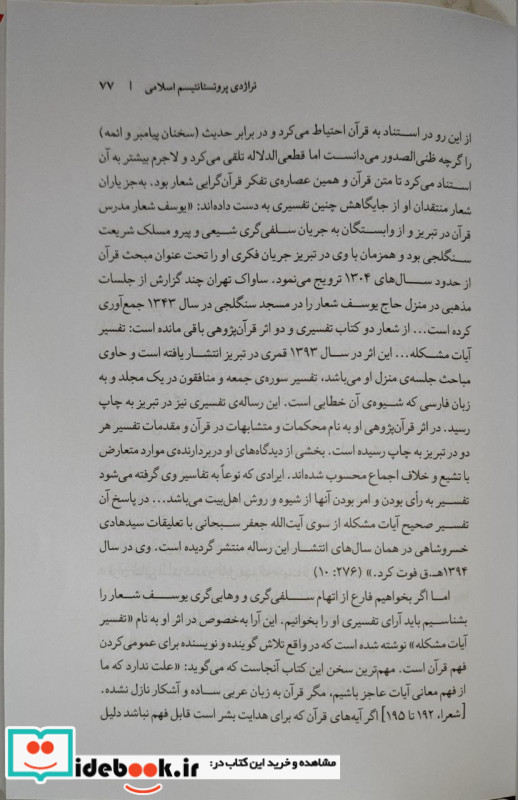 تراژدی پروتستانتیسم اسلامی | ۷۷
از این رو در استناد به قرآن احتیاط می‌کرد و در برابر حدیث (سخنان پیامبر و ائمه)
را گرچه ظنی‌الصدور می‌دانست اما قطعی‌الدلاله تلقی می‌کرد و لاجرم بیشتر به آن
استناد می‌کرد تا متن قرآن و همین عصاره‌ی تفکر قرآن‌گرایی شعار بود. به‌جز یاران
شعار منتقدان او از جایگاهش چنین تفسیری به دست داده‌اند: «یوسف شعار مدرس
قرآن در تبریز و از وابستگان به جریان سلفی‌گری شیعی و پیرو مسلک شریعت
سنگلجی بود و همزمان با وی در تبریز جریان فکری او را تحت عنوان مبحث قرآن
از حدود سال‌های ۱۳۰۴ ترویج می‌نمود. ساواک تهران چند گزارش از جلسات
مذهبی در منزل حاج یوسف شعار را در مسجد سنگلجی در سال ۱۳۴۳ جمع‌آوری
کرده است... از شعار دو کتاب تفسیری و دو اثر قرآن‌پژوهی باقی مانده است: تفسیر
آیات مشکله... این اثر در سال ۱۳۹۳ قمری در تبریز انتشار یافته است و حاوی
مباحث جلسه‌ی منزل او می‌باشد، تفسیر سوره‌ی جمعه و منافقون در یک مجلد و به
زبان فارسی که شیوه‌ی آن خطابی است. این رساله‌ی تفسیری نیز در تبریز به چاپ
رسید. در اثر قرآن‌پژوهی او به نام محکمات و متشابهات در قرآن و مقدمات تفسیر هر
دو در تبریز به چاپ رسیده است. بخشی از دیدگاه‌های او دربردارنده‌ی موارد متعارض
با تشیع و خلاف اجماع محسوب شده‌اند. ایرادی که نوعاً به تفاسیر وی گرفته می‌شود
تفسیر به رأی بودن و امر بودن آنها از شیوه و روش اهل‌بیت می‌باشد... در پاسخ آن
تفسیر صحیح آیات مشکله از سوی آیت‌الله جعفر سبحانی با تعلیقات سیدهادی
خسروشاهی در همان سال‌های انتشار این رساله منتشر گردیده است. وی در سال
۱۳۹۴هـ.ق فوت کرد.» (۲۷۶: ۱۰)
اما اگر بخواهیم فارغ از اتهام سلفی‌گری و وهابی‌گری یوسف شعار را
بشناسیم باید آرای تفسیری او را بخوانیم. این آرا به‌خصوص در اثر او به نام «تفسیر
آیات مشکله» نوشته شده است که در واقع تلاش گوینده و نویسنده برای عمومی‌کردن
فهم قرآن است. مهم‌ترین سخن این کتاب آنجاست که می‌گوید: «علت ندارد که ما
از فهم معانی آیات عاجز باشیم، مگر قرآن به زبان عربی ساده و آشکار نازل نشده.
[شعرا، ۱۹۲ تا ۱۹۵] اگر آیه‌های قرآن که برای هدایت بشر است قابل فهم نباشد دلیل
مشاهده و خرید این کتاب در:
idebook.ir